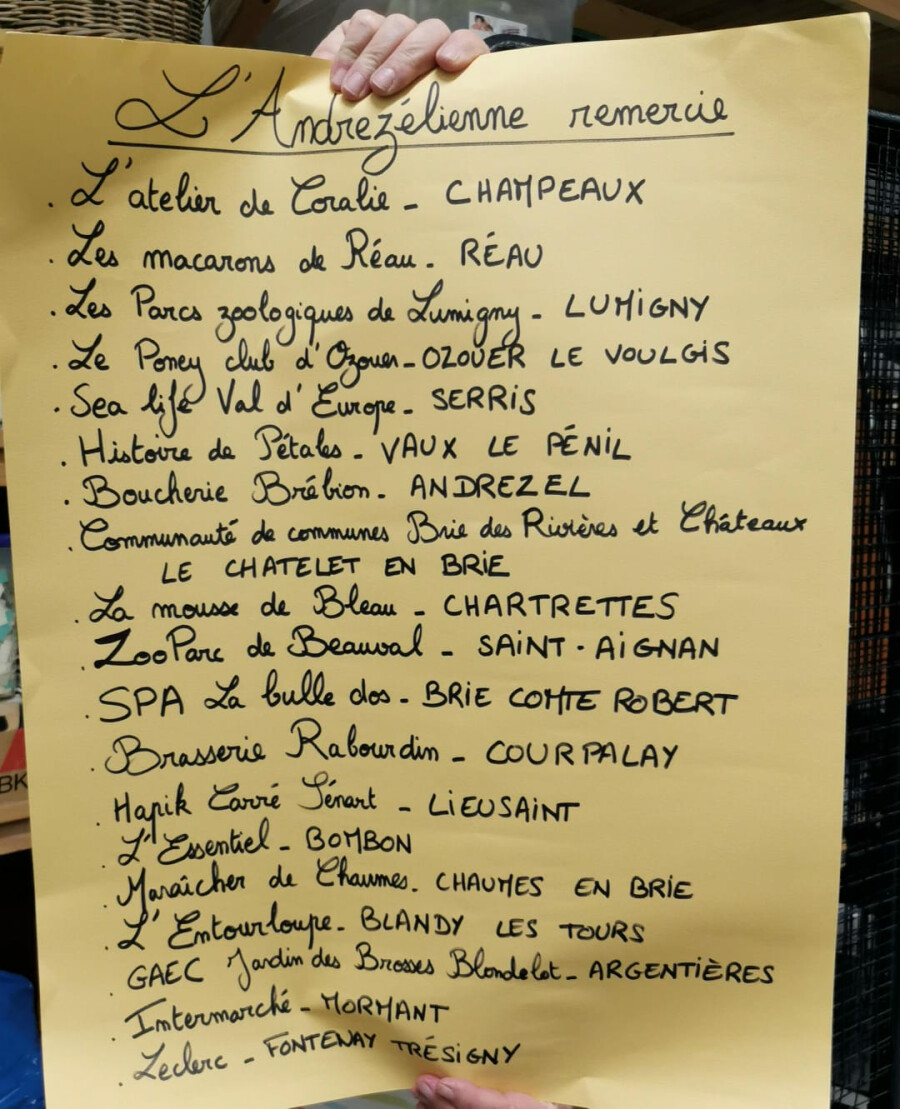 L'Andrezélienne remercie
. L'atelier de Coralie - CHAMPEAUX
. Les macarons de Réau - RÉAU
. Les Parcs zoologiques de Lumigny - LUMIGNY
. Le Poney club d'Ozouer - OZOUER LE VOULGIS
. Sea life Val d'Europe - SERRIS
. Histoire de Pétales - VAUX LE PÉNIL
. Boucherie Brébion - ANDREZEL
. Communauté de communes Brie des Rivières et Châteaux
LE CHATELET EN BRIE
. La mousse de Bleau - CHARTRETTES
. ZooParc de Beauval - SAINT-AIGNAN
. SPA La bulle dos - BRIE COMTE ROBERT
. Brasserie Rabourdin - COURPALAY
. Hapik Carré Sénart - LIEUSAINT
. L'Essentiel - BOMBON
. Maraîcher de Chaumes - CHAUMES EN BRIE
. L'Entourloupe - BLANDY LES TOURS
. GAEC Jardin des Brosses Blondelot - ARGENTIÈRES
. Intermarché - MORMANT
. Leclerc - FONTENAY TRÉSIGNY
BK